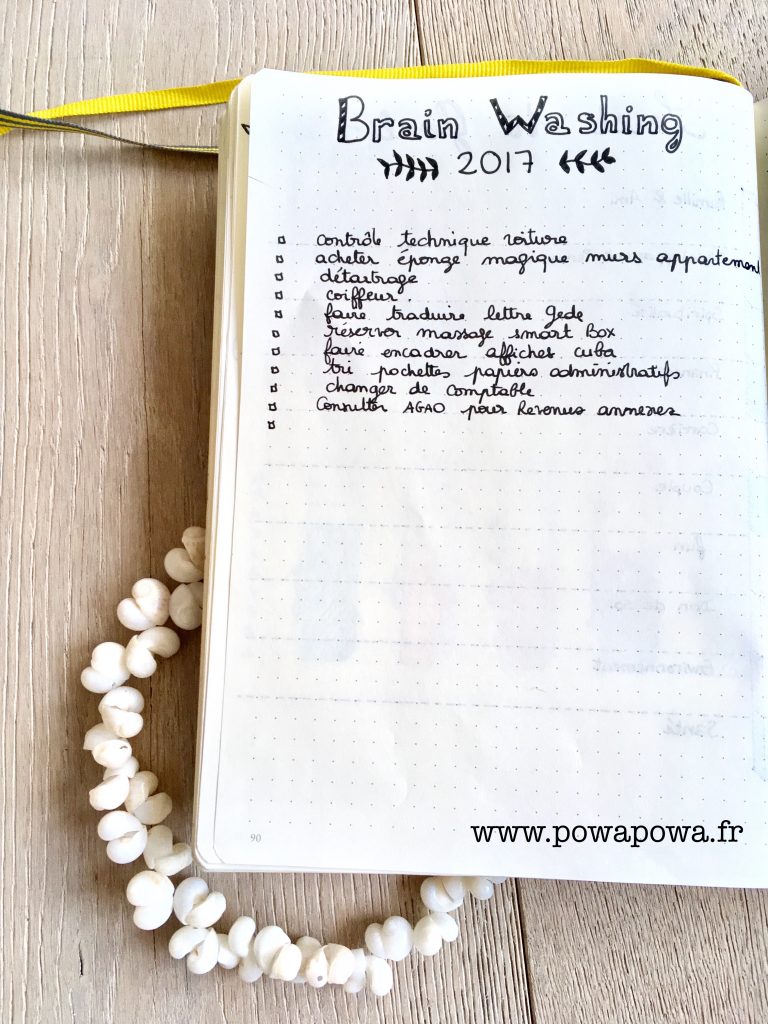 Brain Washing
2017
contrôle technique voiture
acheter éponge magique murs appartement
détartrage
coiffeur.
faire traduire lettre Gede
réserver massage smart Box
faire encadrer affiches cuba
tri pochettes papiers administratifs
changer de comptable
Consulter AGAO pour Revenus annexes
90
www.powapowa.fr